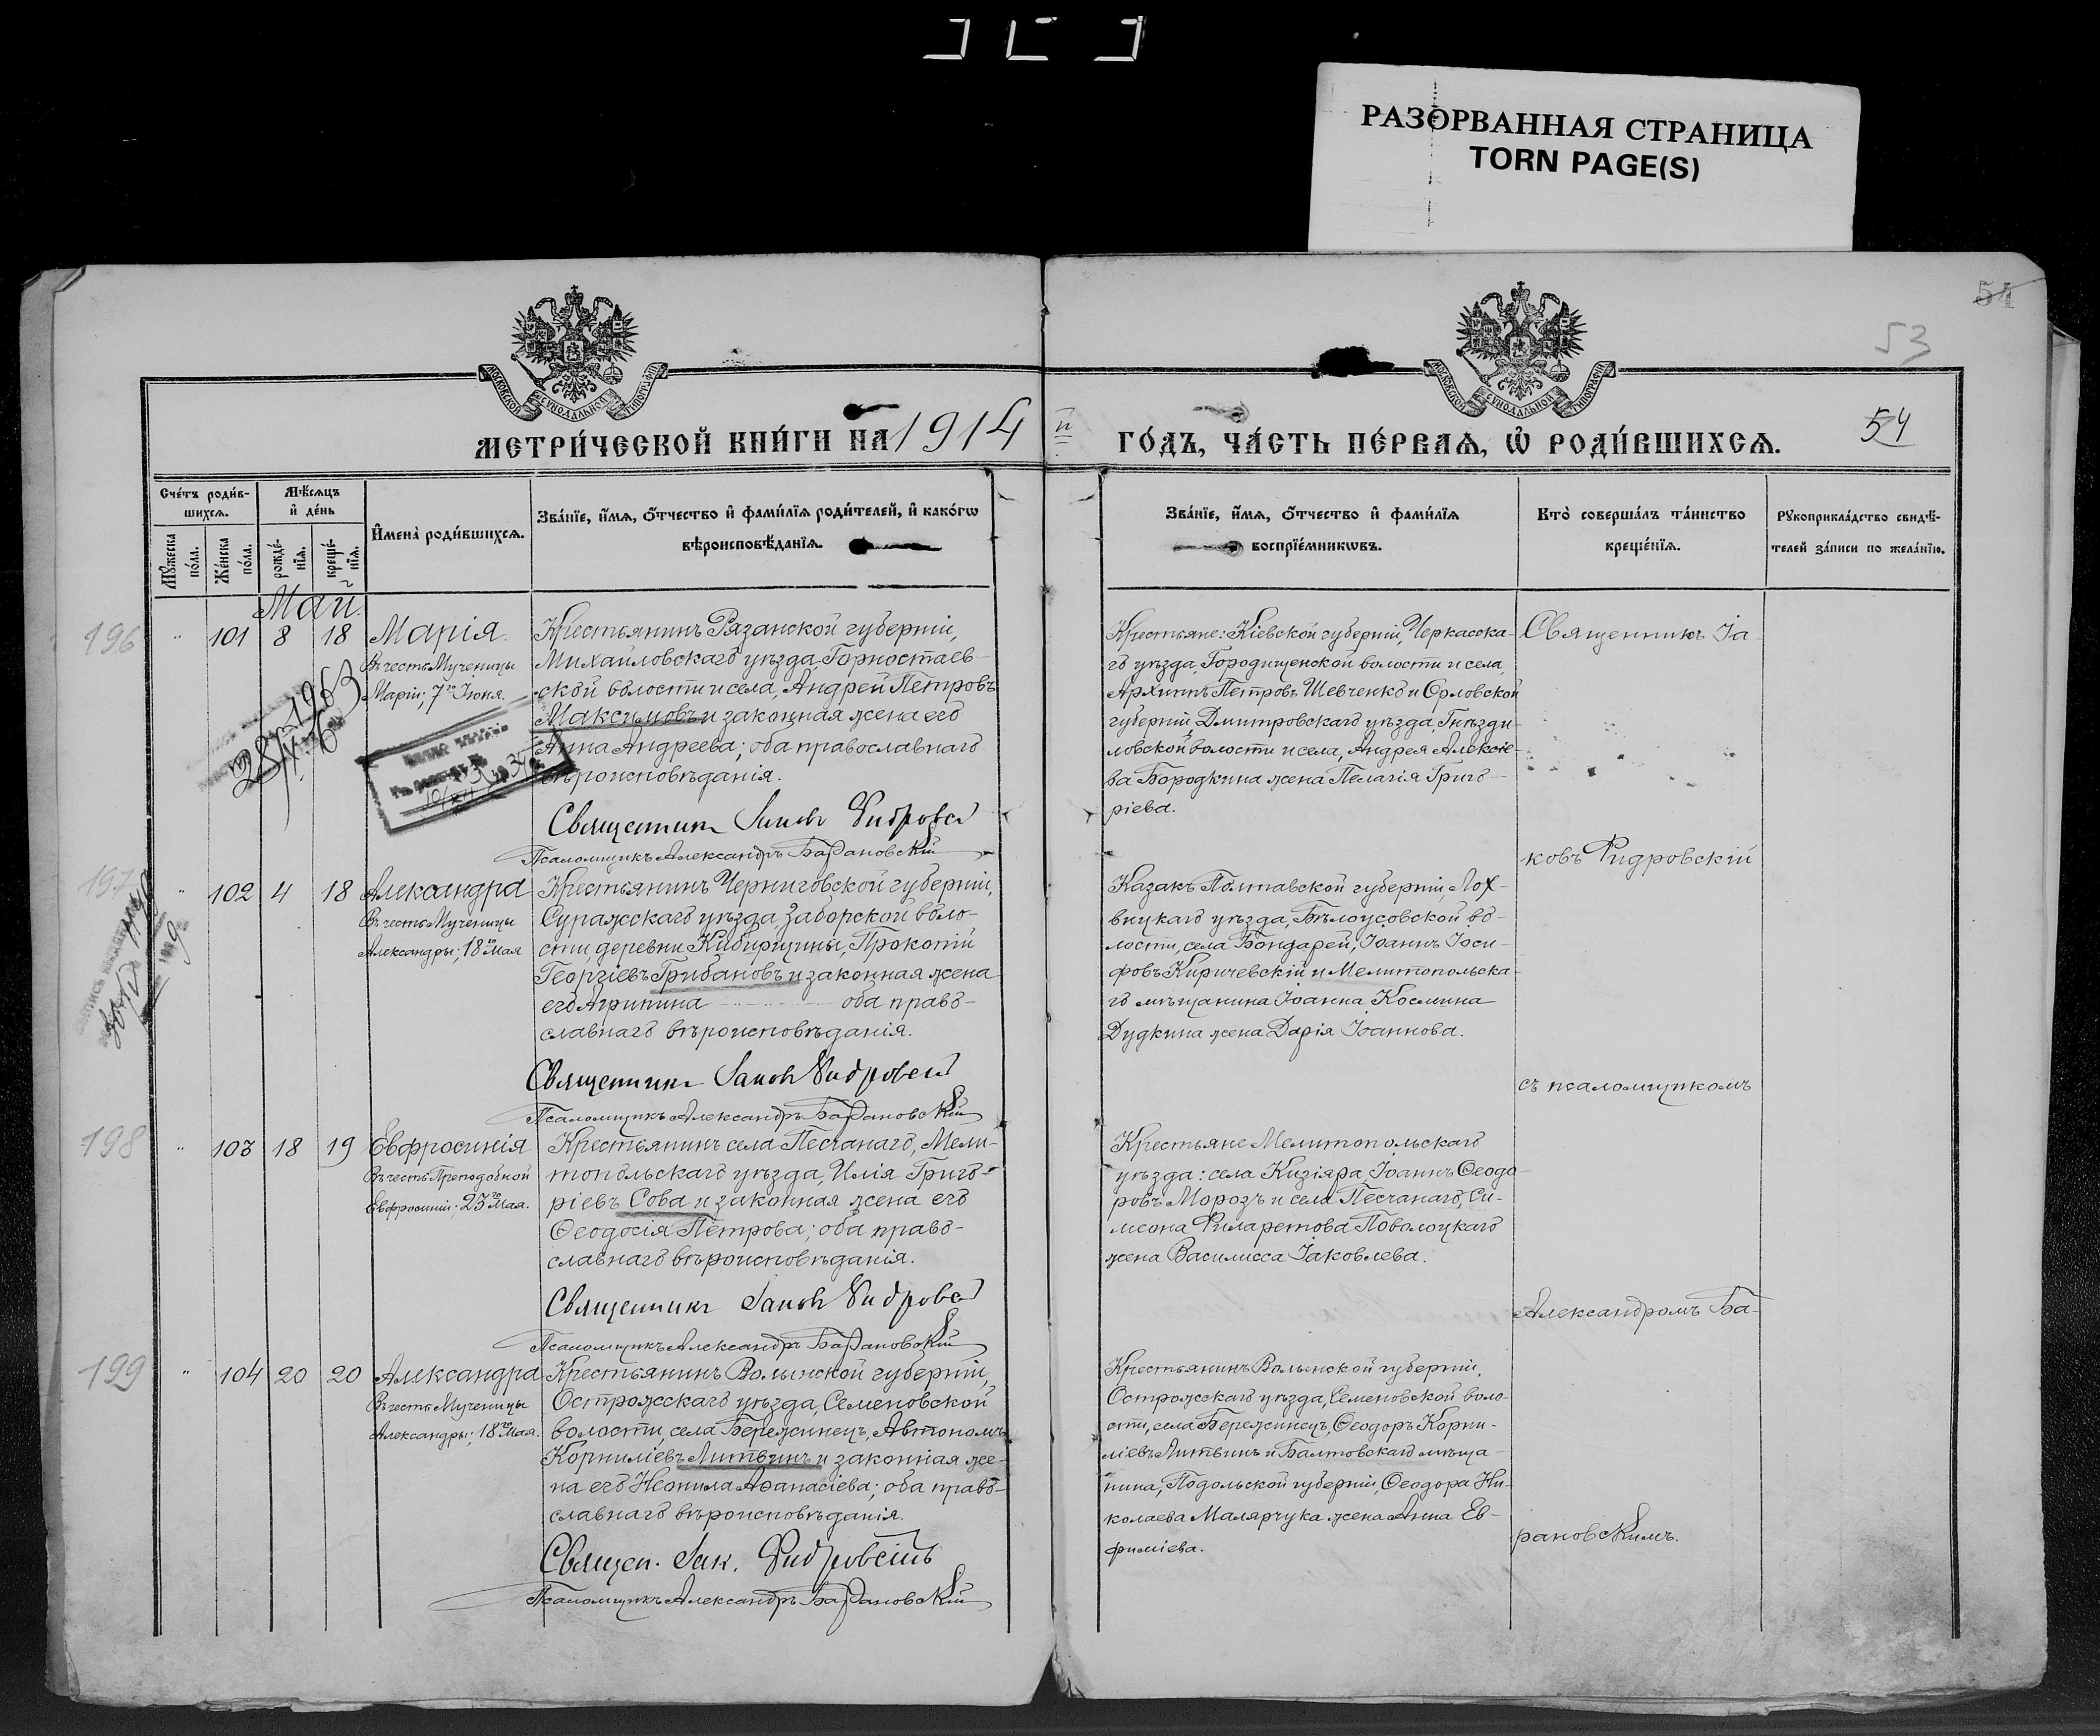 РАЗОРВАННАЯ СТРАНИЦА
TORN PAGE(S)
54
53
54
МОСКОВСКОЙ СѴНОДАЛЬНОЙ ТИПОГРАФІИ
МОСКОВСКОЙ СѴНОДАЛЬНОЙ ТИПОГРАФІИ
МЕТРИ́ЧЕСКОЙ КНИ́ГИ НА 1914 й ГО́ДЪ, ЧА́СТЬ ПЕ́РВАѦ, Ѡ҆ РОДИ́ВШИХСѦ.
Сче́тъ роди́в-
шихсѧ.
Мꙋжеска по́ла.
Же́нска по́ла.
Мѣ́сѧцъ
и҆ де́нь
рожде́-
нїѧ.
креще́-
нїѧ.
И҆мена̀ роди́вшихсѧ.
Зва́нїе, и҆́мѧ, ѻ҆́тчество и҆ фами́лїѧ роди́телей, и҆ како́гѡ
вѣроисповѣ́данїѧ.
Зва́нїе, и҆́мѧ, ѻ҆́тчество и҆ фами́лїѧ
воспрїе́мникѡвъ.
Кто̀ соверша́лъ та́инство
креще́нїѧ.
Рꙋкоприкла́дство свидѣ́-
телей за́писи по жела́нїю.
Май.
196
101 8 18
Марія.
Въ честь Мученицы
Маріи; 7го Іюня.
Крестьянинъ Рязанской губерніи,
Михайловскаго уѣзда, Горностаев-
ской волости и села, Андрей Петровъ
Максимовъ и законная жена его
Анна Андреева; оба православнаго
вѣроисповѣданія.
Священникъ Іаковъ Ридровскій
Псаломщикъ Александръ Барановскій
Крестьяне: Кіевской губерніи, Черкасска-
го уѣзда, Городищенской волости и села,
Архипъ Петровъ Шевченко и Орловской
губерніи, Дмитровскаго уѣзда, Гнѣзди-
ловской волости и села, Андрея Алексѣе-
ва Бородкина жена Пелагія Григо-
ріева.
Священникъ Іа-
ковъ Ридровскій
197
102 4 18
Александра
Въ честь Мученицы
Александры; 18го Мая
Крестьянинъ Черниговской губерніи,
Суражскаго уѣзда, Заборской воло-
сти, деревни Кибирщины, Прокопій
Георгіевъ Грибановъ и законная жена
его Агрипина оба право-
славнаго вѣроисповѣданія.
Священникъ Іаковъ Ридровскій
Псаломщикъ Александръ Барановскій
Казакъ Полтавской губерніи, Лох-
вицкаго уѣзда, Бѣлоусовской во-
лости, села Бондарей, Іоаннъ Іоси-
фовъ Киричевскій и Мелитопольска-
го мѣщанина Іоанна Космина
Дудкина жена Дарія Іоаннова.
съ псаломщикомъ
198
103 18 19
Евфросинія
Въ честь Преподобной
Евфросиніи; 23го Мая.
Крестьянинъ села Песчанаго, Мели-
топольскаго уѣзда, Илія Григо-
ріевъ Сова и законная жена его
Ѳеодосія Петрова; оба право-
славнаго вѣроисповѣданія.
Священникъ Іаковъ Ридровскій
Псаломщикъ Александръ Барановскій
Крестьяне Мелитопольскаго
уѣзда: села Кизіяра, Іоаннъ Ѳеодо-
ровъ Морозъ и села Песчанаго, Си-
меона Филаретова Поволоцкаго
жена Василисса Іаковлева.
Александромъ Ба-
199
104 20 20
Александра
Въ честь Мученицы
Александры; 18го Мая.
Крестьянинъ Волынской губерніи,
Острожскаго уѣзда, Семеновской
волости, села Бережинецъ, Автономъ
Корниліевъ Литвинъ и законная же-
на его Неонила Аѳанасіева; оба право-
славнаго вѣроисповѣданія.
Священ. Іак. Ридровскій
Псаломщикъ Александръ Барановскій
Крестьянинъ Волынской губерніи,
Острожскаго уѣзда, Семеновской воло-
сти, села Бережинецъ, Ѳеодоръ Корни-
ліевъ Литвинъ и Балтовскаго мѣща-
нина, Подольской губерніи, Ѳеодора Ни-
колаева Малярчука жена Анна Ев-
фиміева.
рановскимъ.